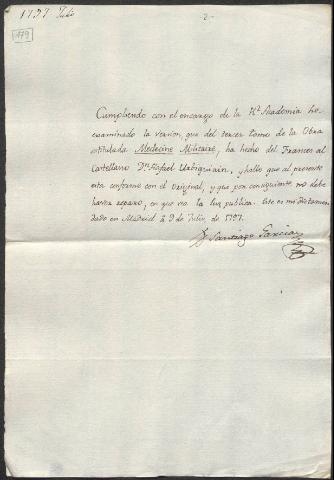 1797 Julio
2
179
Cumpliendo con el encargo de la Rl. Academia he
examinado la version que del tercer tomo de la Obra
intitulada Medecine Militaire, ha hecho del Frances al
Castellano Dn. Rafael, y hallo que al presente
esta conforme con el Original, y que por consiguiente no debe
haver reparo, en que vea la luz publica. Este es mi dictamen
dado en Madrid à 9 de Julio, de 1797.
Dr. Santiago Garcia